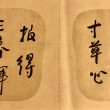 寸草心
报得
三春暉